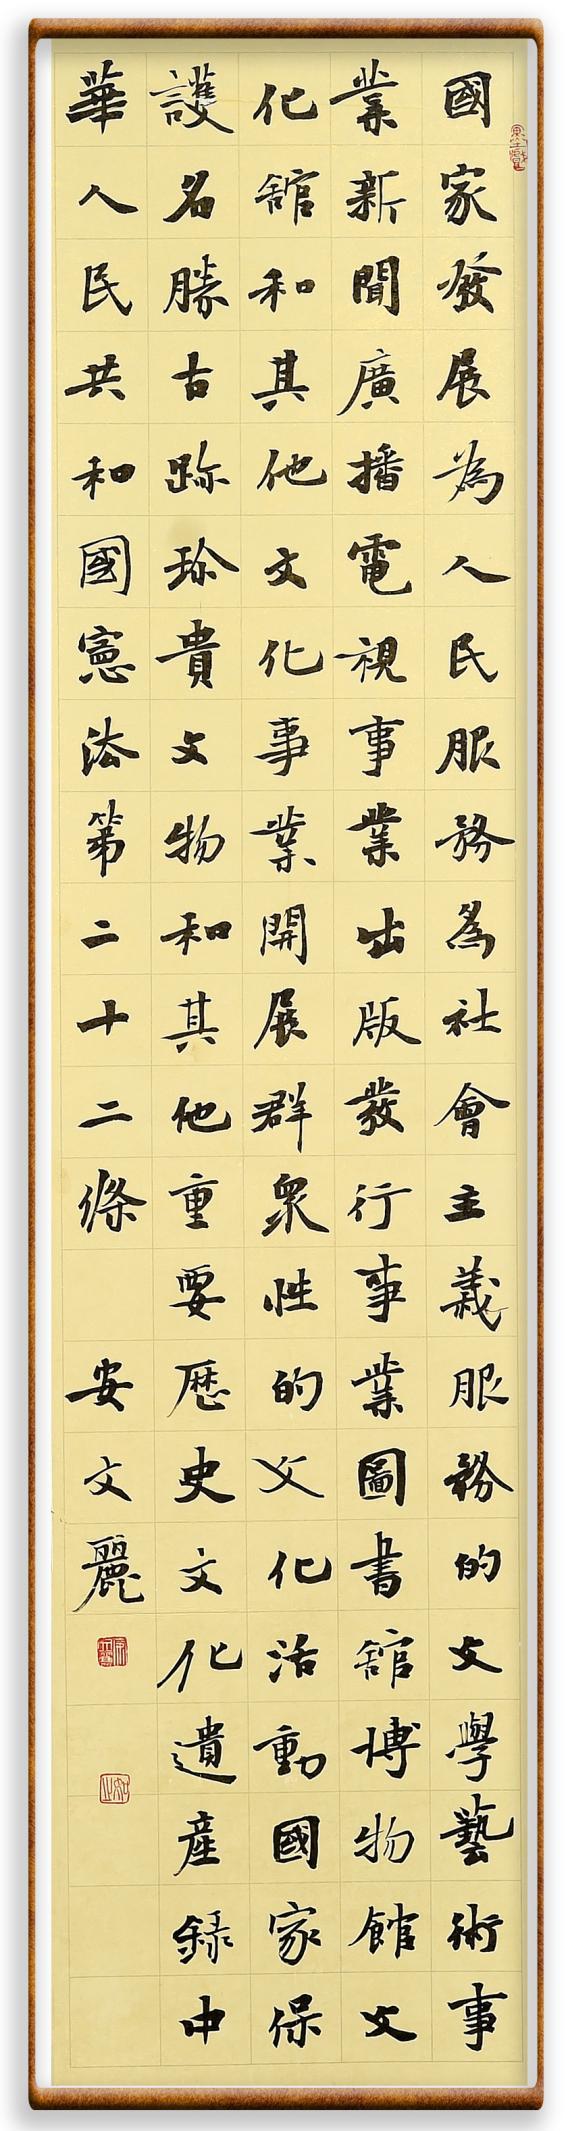 國家發展為人民服務為社會主義服務的文學藝術事
業新聞廣播電視事業出版發行事業圖書舘博物館文
化舘和其他文化事業開展群衆性的文化活動國家保
護名勝古跡珍貴文物和其他重要歷史文化遺產錄中
華人民共和國憲法第二十二條 安文麗